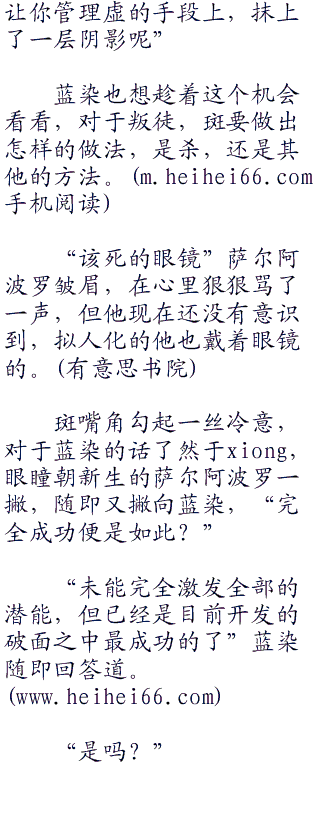 让你管理虚的手段上，抹上
了一层阴影呢”
蓝染也想趁着这个机会
看看，对于叛徒，斑要做出
怎样的做法，是杀，还是其
他的方法。(m.heihei66.com
手机阅读)
“该死的眼镜”萨尔阿
波罗皱眉，在心里狠狠骂了
一声，但他现在还没有意识
到，拟人化的他也戴着眼镜
的。(有意思书院)
斑嘴角勾起一丝冷意，
对于蓝染的话了然于xiong，
眼瞳朝新生的萨尔阿波罗一
撇，随即又撇向蓝染，“完
全成功便是如此？”
“未能完全激发全部的
潜能，但已经是目前开发的
破面之中最成功的了”蓝染
随即回答道。
(www.heihei66.com)
“是吗？”